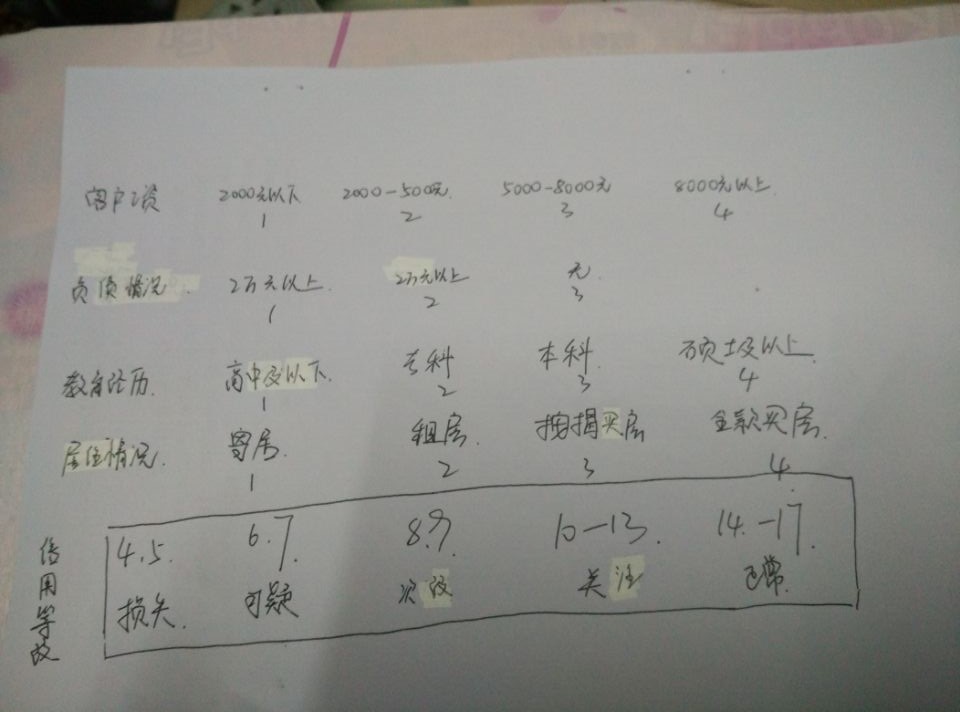 客户工资 2000元以下 2000-500元 5000-8000元 8000元以上
1 2 3 4
负债情况 2万元以上 2万元以上 无
1 2 3
教育经历 高中及以下 专科 本科 硕士及以上
1 2 3 4
居住情况 寄居 租房 按揭买房 全款买房
1 2 3 4
4.5 6.7 8.9 10-13 14-17
损失 可疑 次级 关注 正常
信用等级